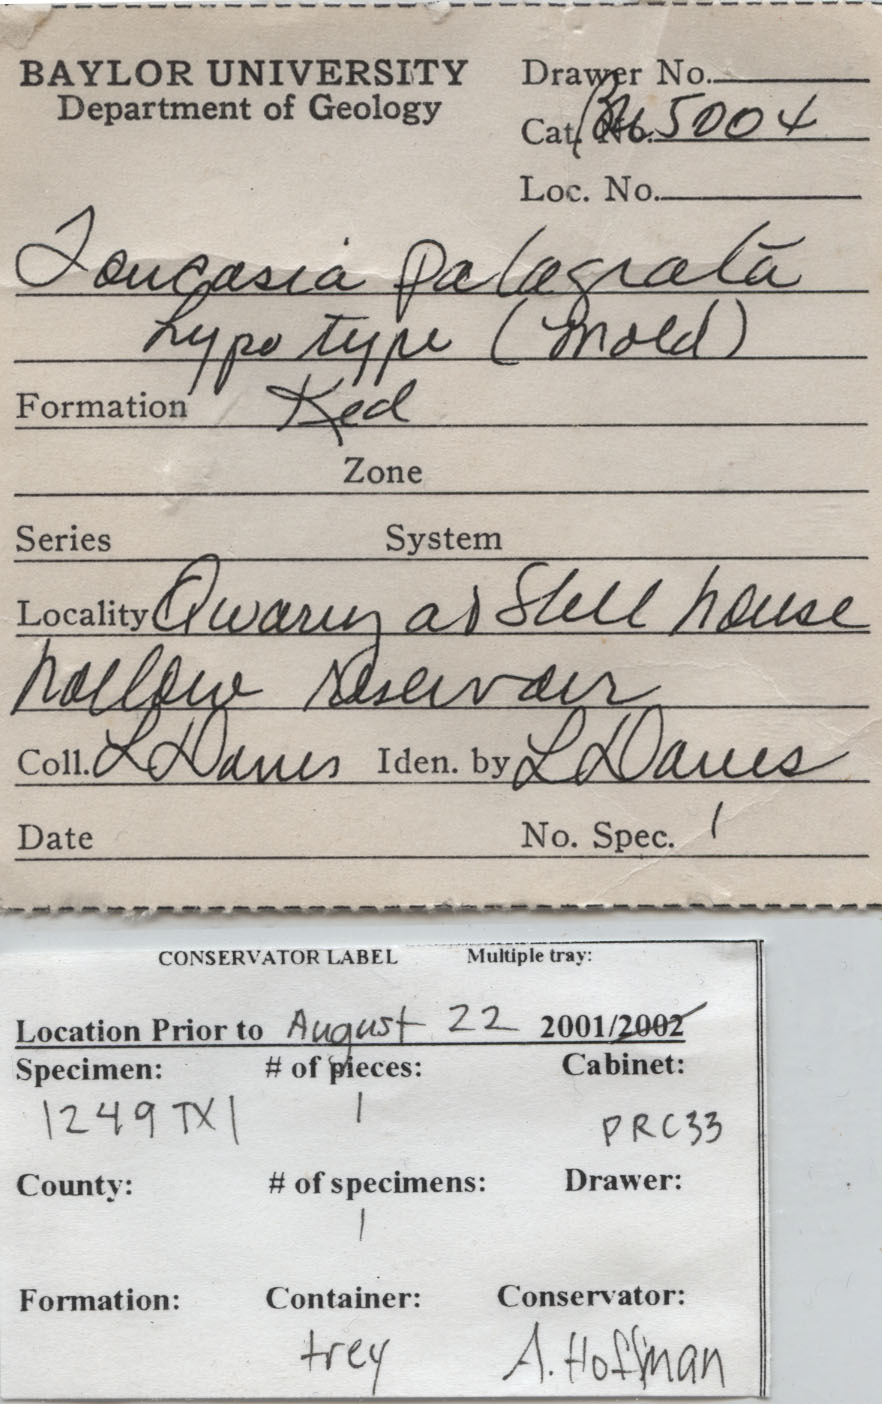 BAYLOR UNIVERSITY
Department of Geology
Drawer No.
Cat. No. BU 5004
Loc. No.
Toucasia patagiata
hypotype (mold)
Formation Ked
Zone
Series System
Locality Quarry at Still house
hollow reservoir
Coll. L Davies Iden. by L Davies
Date No. Spec. 1
CONSERVATOR LABEL Multiple tray:
Location Prior to August 22 2001/2002
Specimen: # of pieces: Cabinet:
1249TX1 1 PRC33
County: # of specimens: Drawer:
1
Formation: Container: Conservator:
trey A. Hoffman